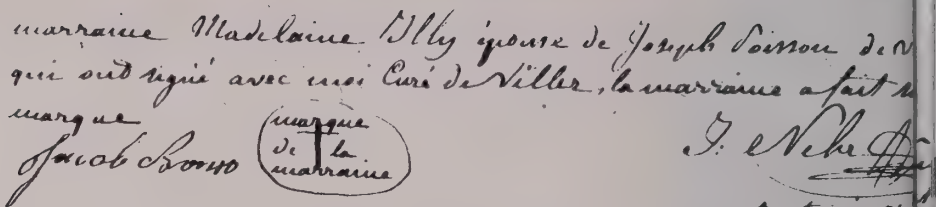 marraine Madelaine Illy épouse de Joseph Poisson de
qui ont signé avec moi Curé de Viller, la marraine a fait
marque
marque
de la
marraine
Jacob
J. Nehr